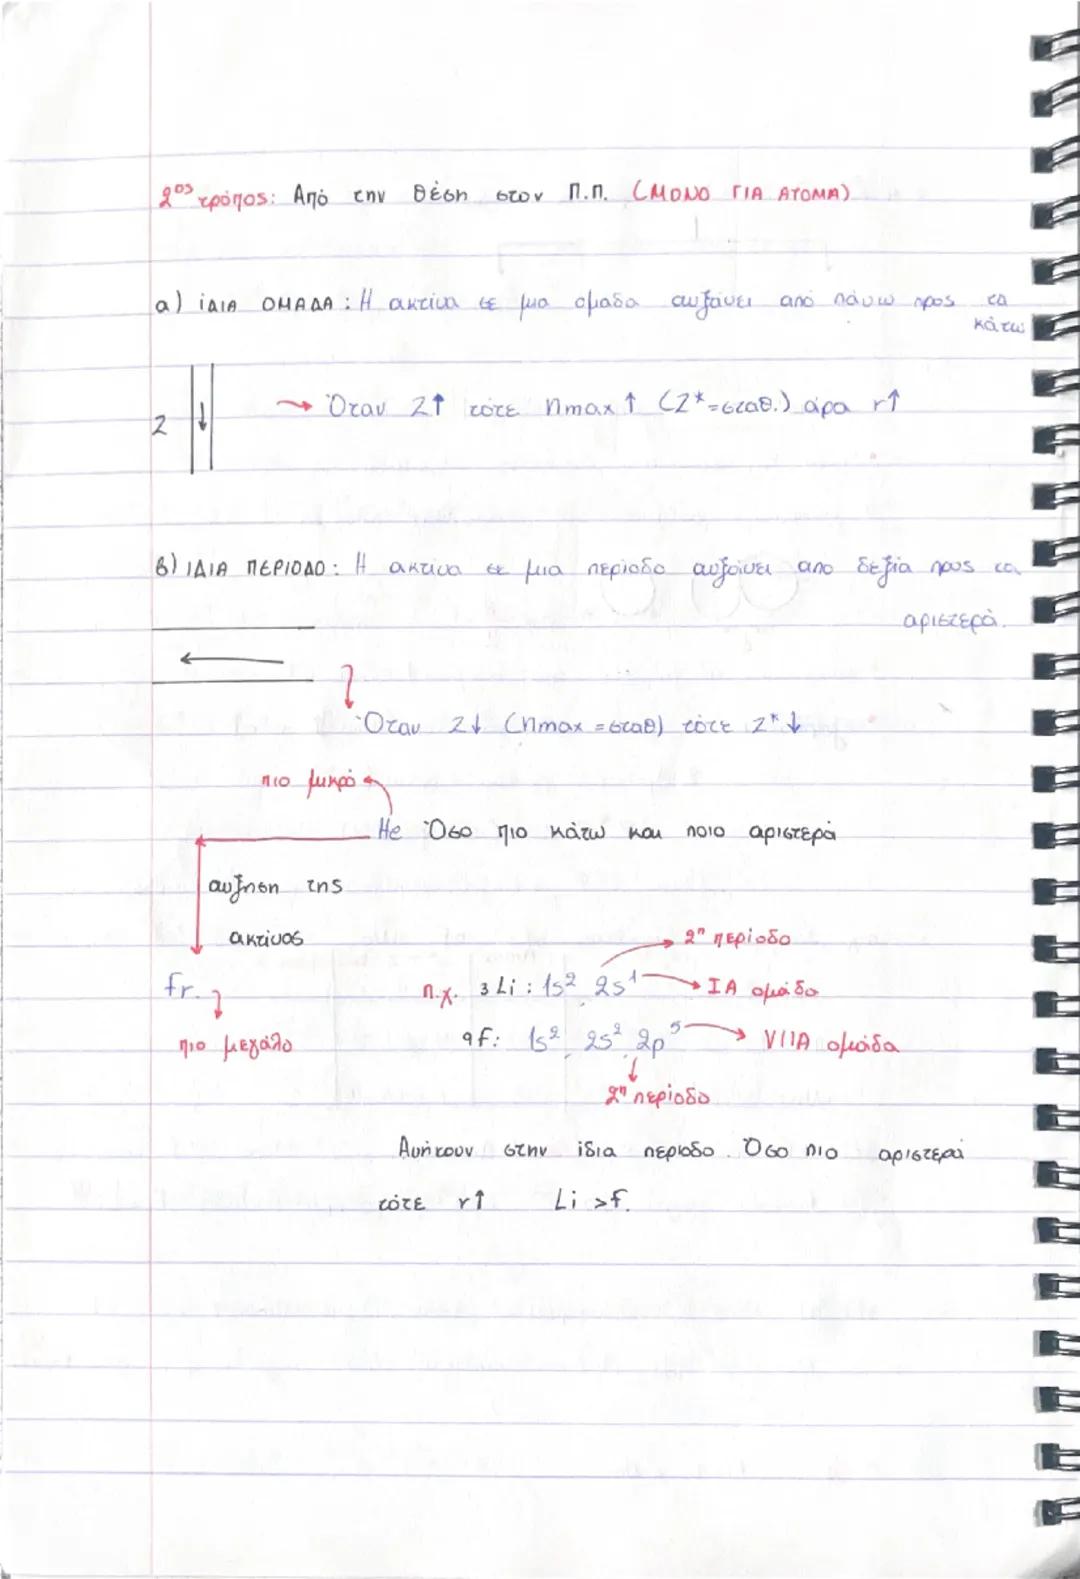 2ος τρόπος: Από την θέση στον Π.Π. (ΜΟΝΟ ΓΙΑ ΑΤΟΜΑ)
α) ίΔΙΑ ΟΜΑΔΑ: Η ακτίνα σε μια ομαδα αυξάνει από πάνω προς τα
κάτω
Ζ
→ Όταν Ζ↑ τότε nmax ↑ (Ζ*=σταθ.) άρα r↑
β) ΙΔΙΑ ΠΕΡΙΟΔΟ: Η ακτίνα σε μια περίοδο αυξάνει απο δεξία προς τα
αριστερά.
Όταν Ζ↓ (nmax =σταθ) τότε Ζ*↓
πιο μικρό
He Όσο πιο κάτω και ποιο αριστερά
αυξηση της
ακτίνας
→ 2η περίοδο
fr.
п.χ. 3 Li : 1s2 2s1 → ΙΑ ομάδα
πιο μεγάλο
9f: 1s2 2s2 2p5 → VIIA ομάδα
2η περίοδο
Ανήκουν στην ίδια περιοδο. Όσο πιο αριστερά
τότε r↑ Li >f.